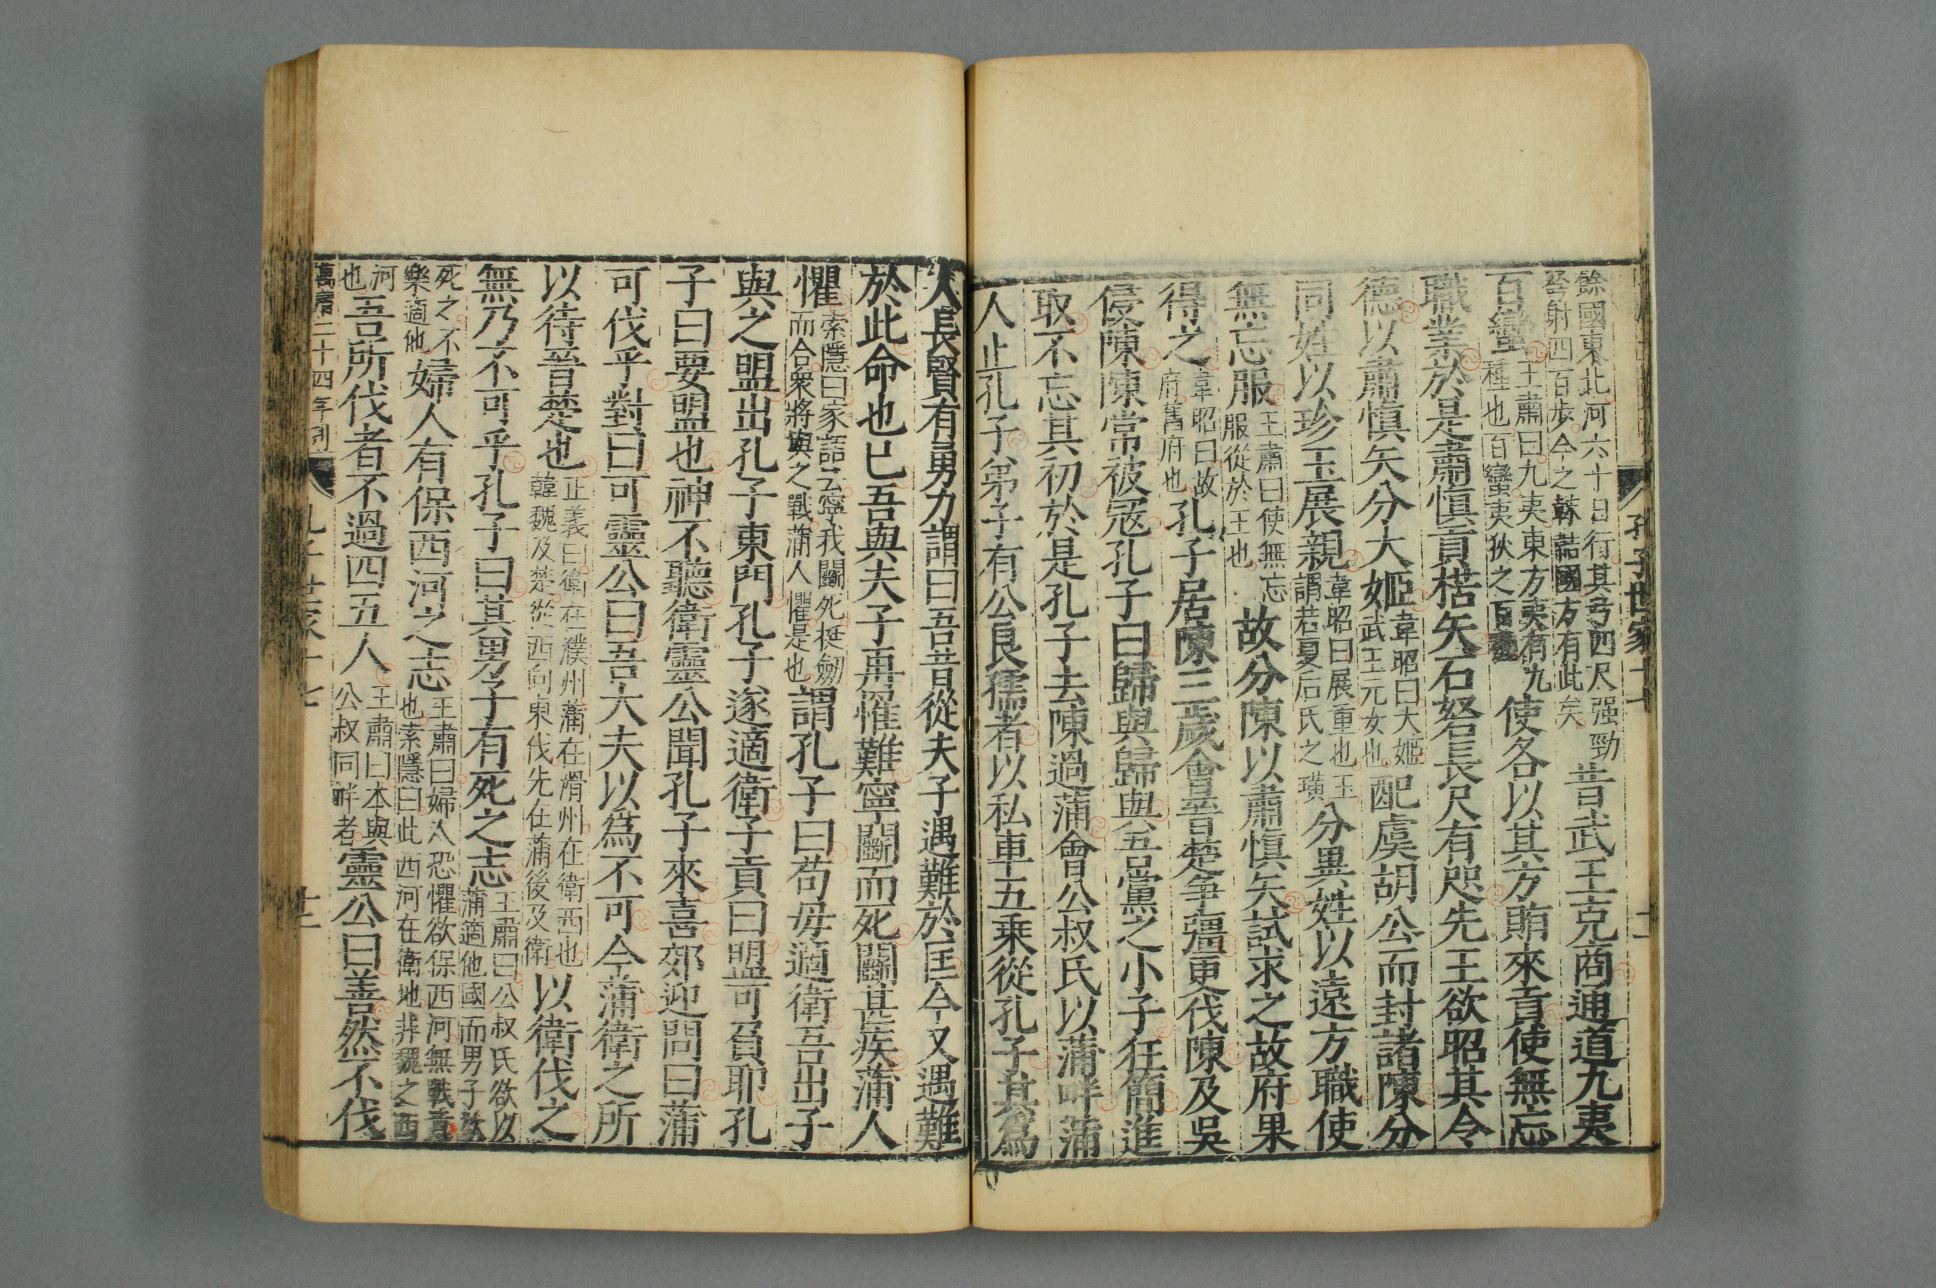 孔子世家十七
餘國東北河六十日行其弓四尺強勁弩射四百步今之靺鞨國方有此矢昔武王克商通道九夷
百蠻王肅曰九夷東方夷有九種也百蠻夷狄之百種使各以其方賄來貢使無忘
職業於是肅慎貢楛矢石砮長尺有咫先王欲昭其令
德以肅慎矢分大姬韋昭曰大姬武王元女也配虞胡公而封諸陳分
同姓以珍玉展親韋昭曰展重也玉謂若夏后氏之璜分異姓以遠方職使
無忘服王肅曰使無忘服從於王也故分陳以肅慎矢試求之故府果
得之韋昭曰故府舊府也孔子居陳三歲會晉楚爭彊更伐陳及吳
侵陳陳常被寇孔子曰歸與歸與吾黨之小子狂簡進
取不忘其初於是孔子去陳過蒲會公叔氏以蒲畔蒲
人止孔子弟子有公良孺者以私車五乘從孔子其為
人長賢有勇力謂曰吾昔從夫子遇難於匡今又遇難
於此命也已吾與夫子再罹難寧鬭而死鬭甚疾蒲人
懼索隱曰家語云寧我鬭死挺劒而合衆將與之戰蒲人懼是也謂孔子曰苟毋適衛吾出子
與之盟出孔子東門孔子遂適衛子貢曰盟可負耶孔
子曰要盟也神不聽衛靈公聞孔子來喜郊迎問曰蒲
可伐乎對曰可靈公曰吾大夫以為不可今蒲衛之所
以待晉楚也正義曰衛在濮州蒲在滑州在衛西也韓魏及楚從西向東伐先在蒲後及衛以衛伐之
無乃不可乎孔子曰其男子有死之志王肅曰公叔氏欲以蒲適他國而男子欲
死之不樂適他婦人有保西河之志王肅曰婦人恐懼欲保西河無戰意也索隱曰此西河在衛地非魏之西
河也吾所伐者不過四五人王肅曰本與公叔同畔者靈公曰善然不伐
萬曆二十四年刊
孔子世家十七
十二